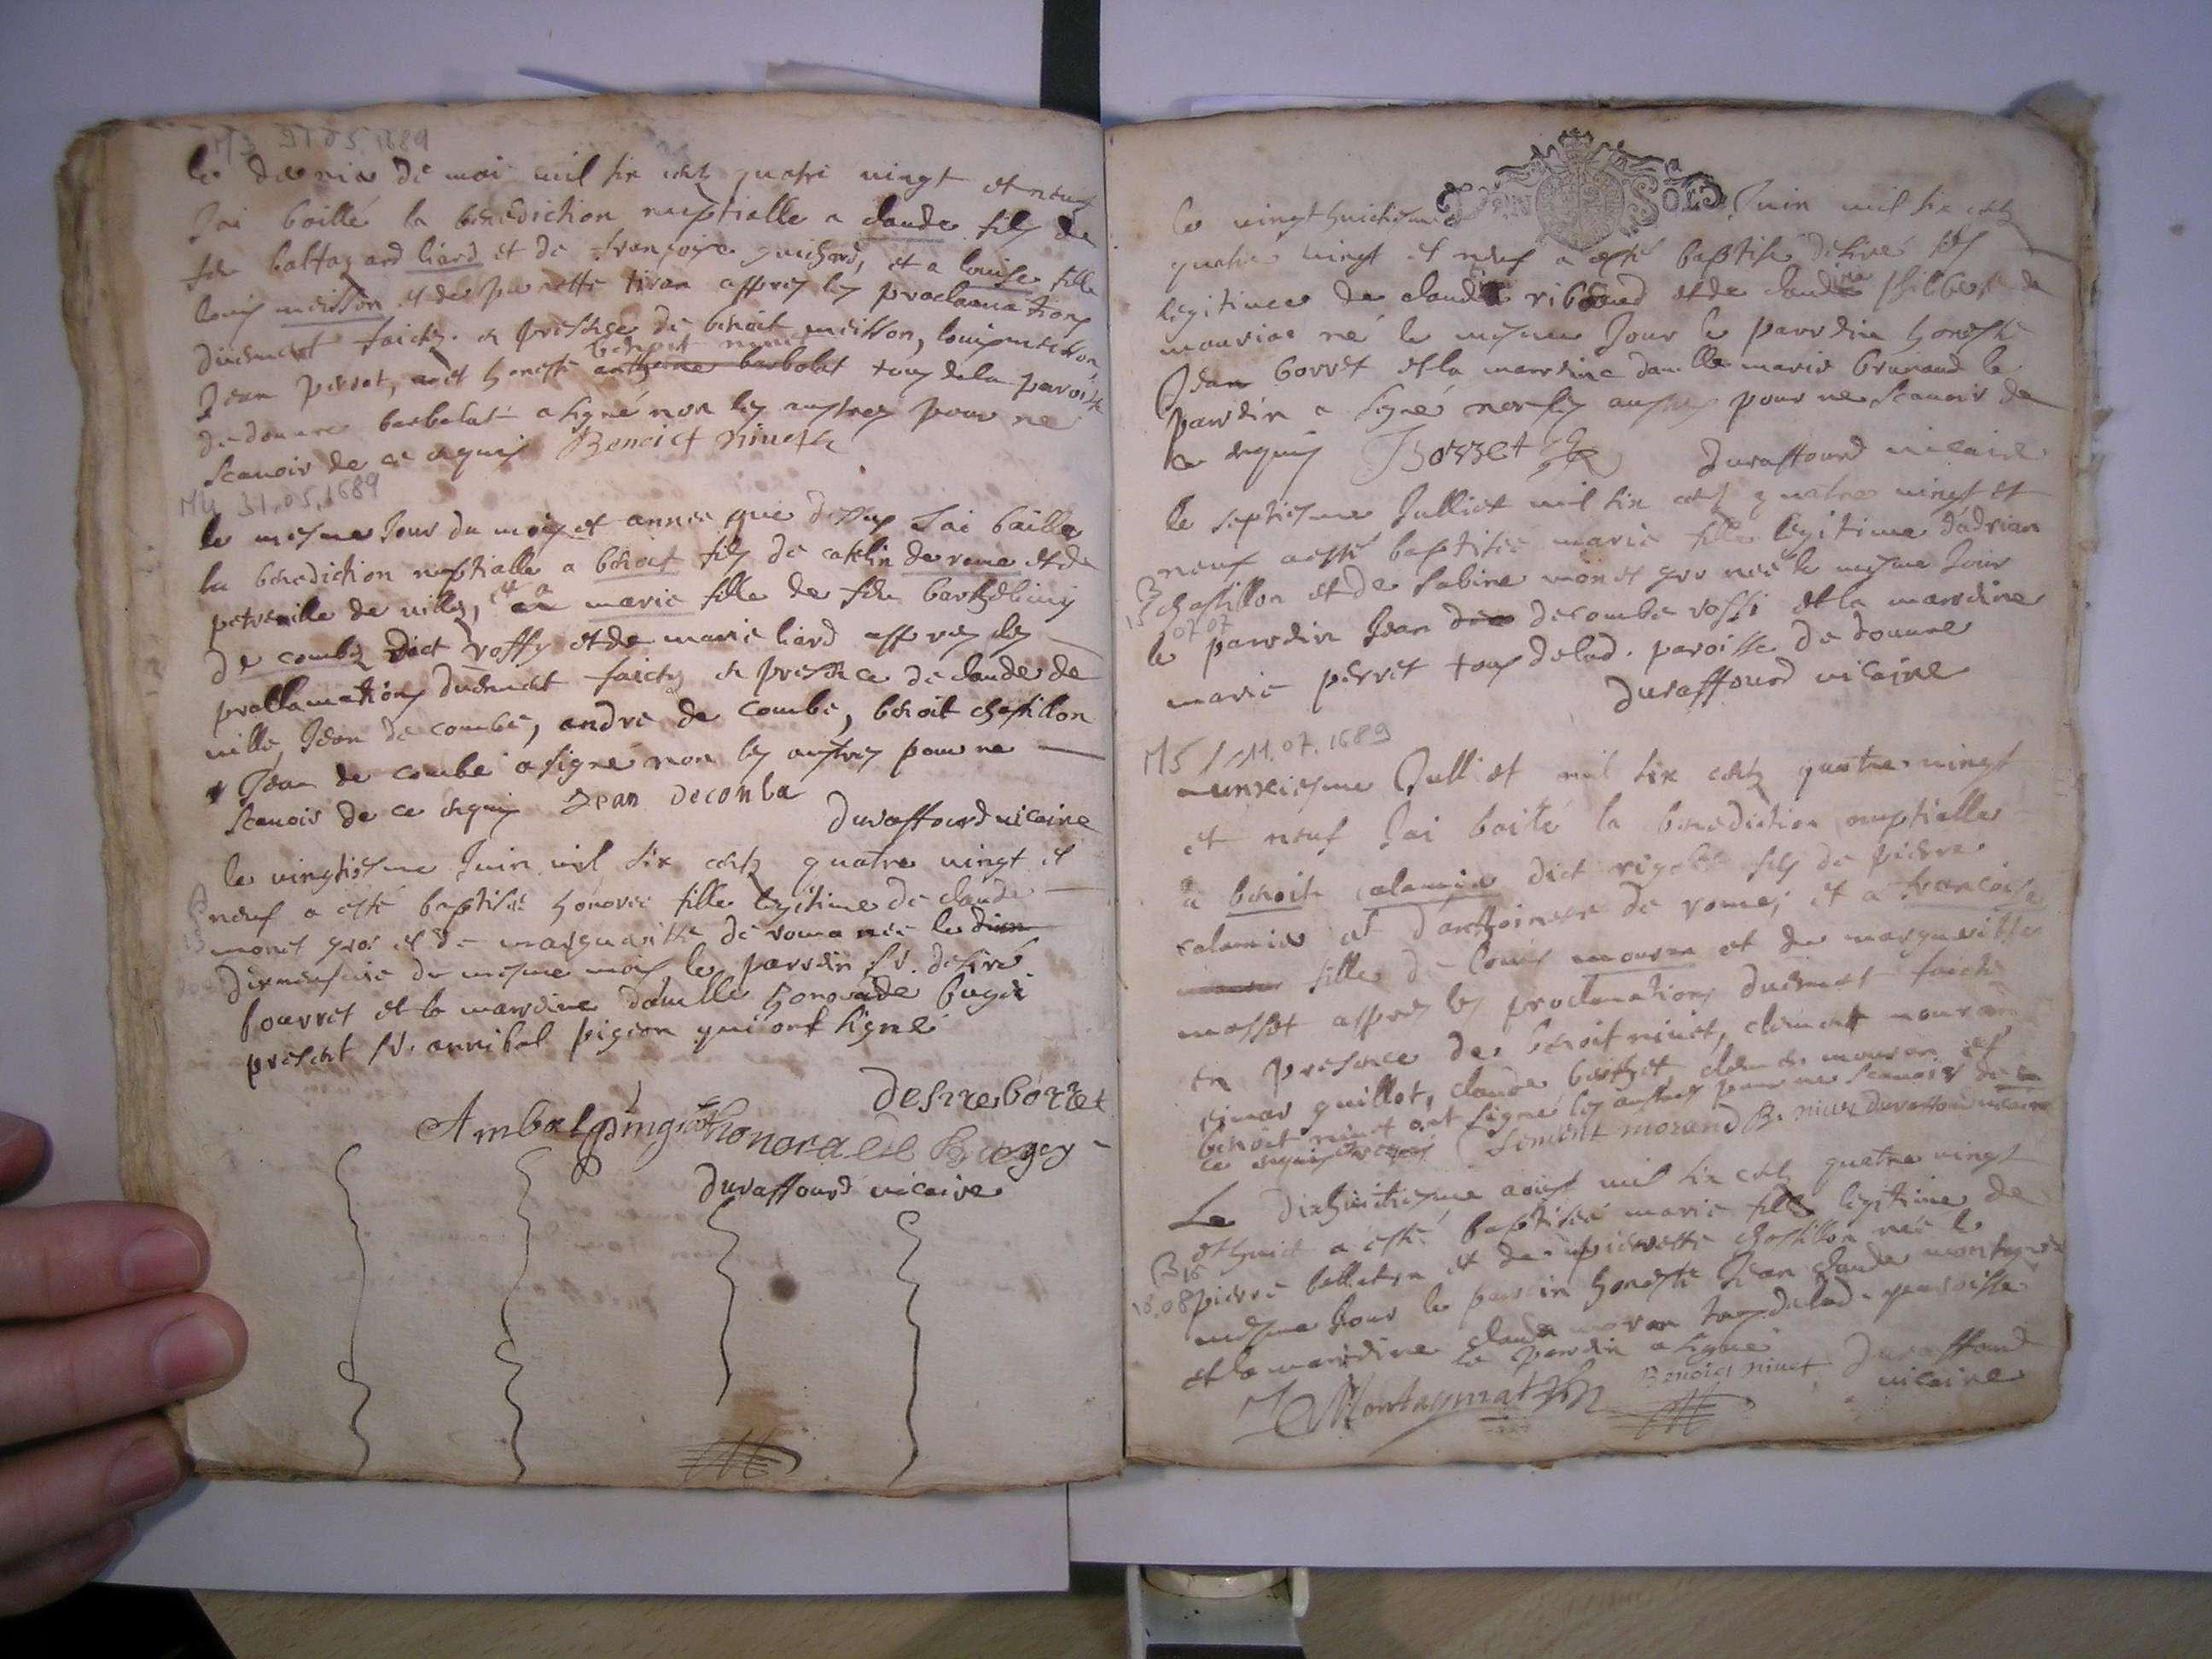 M3 31 05. 1689
le dernier de mai mil six centz quatre vingt et neuf
Jai baillé la benediction nuptialle a claude filz de
feu baltazard liard et de françoise guichard, et a louise fille
louis meisson et de pernette tivan apprez les proclamations
duement faictz. en presence de benoit meisson, louis meisson
benoit ninet
Jean perret, et honeste anthoine barbolat tous de la paroisse
de douure barbolat a signé non les austres pour ne
scauoir de ce requis Benoict ninet
M4 31.05.1689
le mesme Jour du mois et annee que dessus Jai baille
la benediction nuptialle a benoit filz de catelin de rome et de
petronille de ville, et a marie fille de feu barthelemy
de combe dict roffy et de marie liard apprez les
proclamations duement faictz en presence de claude de
ville, Jean de combe, andre de combe, benoit chastillon
Jean de combe a signe non les austres pour ne
scauoir de ce requis Jean deconba
duraffourd uicaire
le vingtiesme Juin mil six centz quatre vingt et
neuf a esté baptisée honoree fille legitime de claude
monet gros et de marguaritte de roma nee le dixn
dixneufuie du mesme mois le parrdin sr. desiré
bourret et la marrdine damlle honorade bugei
present sr. annibal pigeon qui ont signé
desire borret
Anibal pingeon honorade Bugey
duraffourd uicaire
DEUX SOLS
le vingt huictiesme Juin mil six centz
quatre vingt et neuf a esté baptisé desiré filz
legitime de claude riboud et de claudine philibert de
mauriac né le mesme Jour le parrdin honeste
Jean borret et la marrdine damlle marie brunaud le
parrdin a signé non les austres pour ne scauoir de
ce requis Borret duraffourd uicaire
le septiesme Julliet mil six centz quatre vingt et
neuf a esté baptisée marie fille legitime d'adrian
B
chastillon et de sabine monet gro nee le mesme Jour
15 07 07
le parrdin Jean decombe roffi et la marrdine
marie perret tous de lad. paroisse de douure
duraffourd uicaire
M5 11.07.1689
unxiesme Julliet mil six centz quatre vingt
et neuf Jai bailé la benediction nuptialle
a benoit calamin dict rigolet filz de pierre
calamin et d'anthoinette de rome, et a francoise
fille de louis mouran et de marguaritte
mosset apprez les proclamations duement faictz
en presence de benoit ninet, clement mouran
eimar guillot, claude berthet clement mouran et
benoit ninet ont signé les austres pour ne scauoir de
ce requis Clement morand B. ninet duraffourd uicaire
Le dixhuitiesme aoust mil six centz quatre vingt
et huict a esté baptisée marie fille legitime de
B 16
18.08 pierre ballatzn et de pierrette chastillon née le
mesme Jour le parrin honeste Jean claude montagnat
et la marrdine claude moran tous de lad. paroisse
le parrdin a signé
Montagnat Benoict ninet duraffourd
uicaire